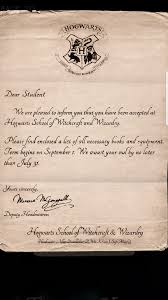 HOGWARTS
Dear Student
We are pleased to inform you that you have been accepted at
Hogwarts School of Witchcraft and Wizardry.
Please find enclosed a list of all necessary books and equipment.
Term begins on September 1. We await your owl by no later
than July 31.
Yours sincerely,
Minerva McGonagall
Deputy Headmistress
Hogwarts School of Witchcraft & Wizardry